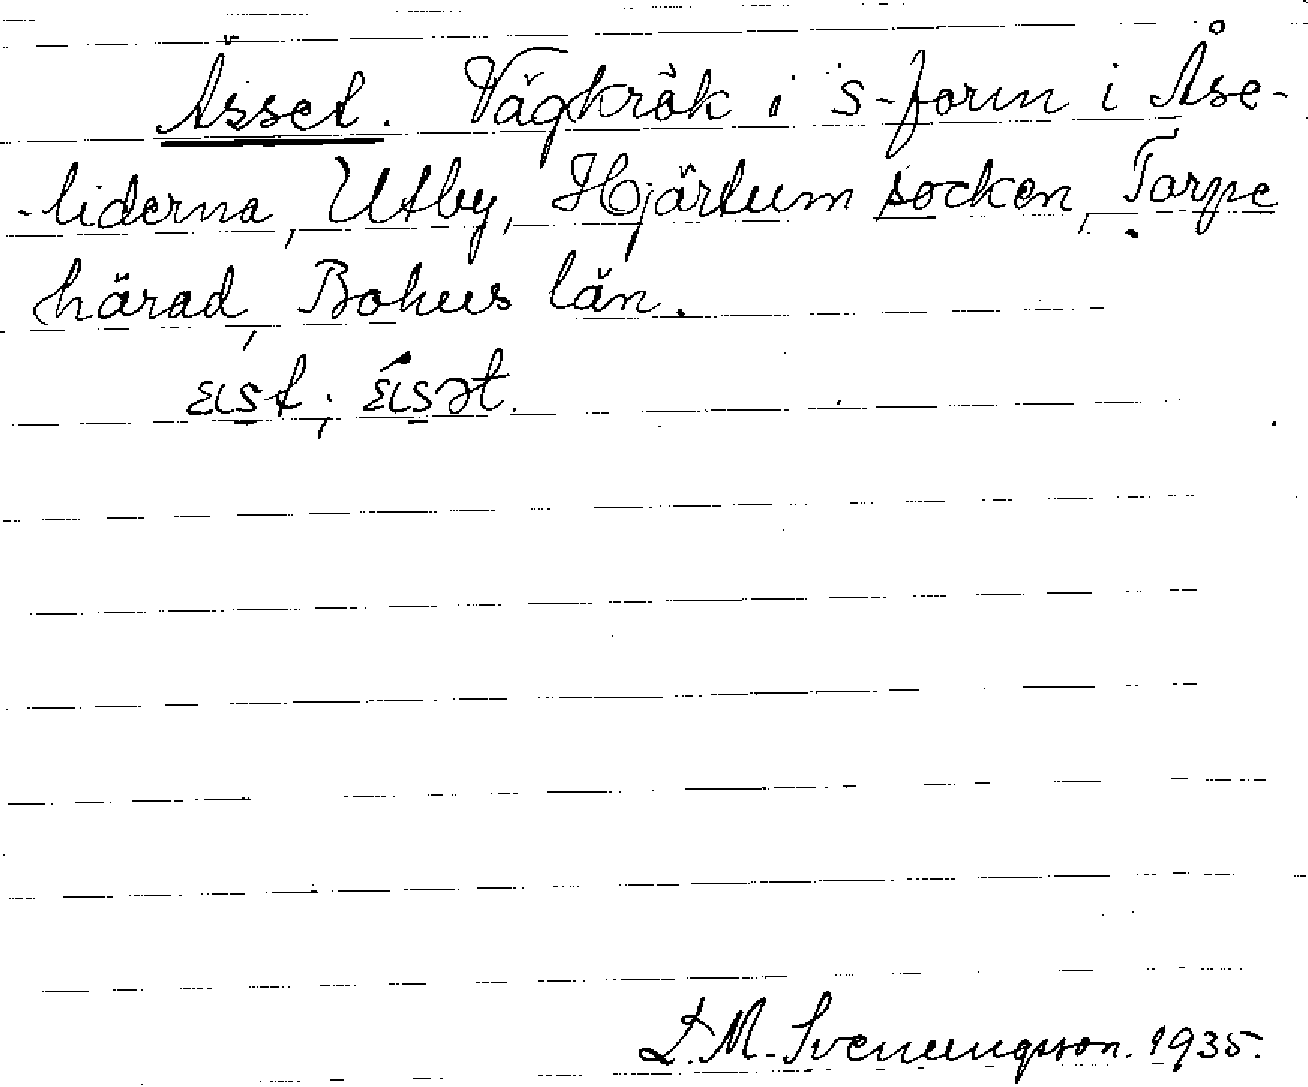 Ässet. Vägkrök i s-form i Åse-
-liderna, Utby, Hjärtum socken, Torpe
härad, Bohus län.
D. M. Svenungsson. 1935.